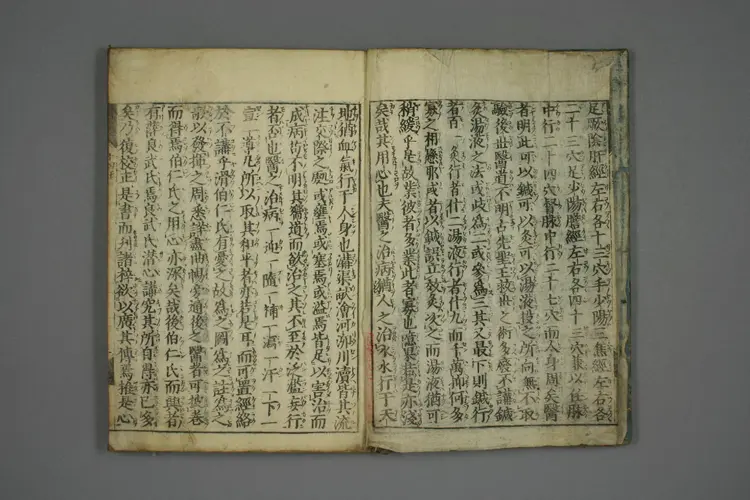 足厥陰肝經左右各十三穴手少陽三焦經左右各
二十三穴足少陽膽經左右各四十三穴兼以任脉
中行二十四穴督脉中行二十七穴而人身周矣醫
者明此可以鍼可以灸可以湯液投之所向無不取
驗後世醫道不明古先聖王救世之術多廢不講鍼
灸湯液之法或歧為二或參為三其又最下則鍼行
者百一灸行者什二湯液行者什九而千萬抑何多
寡之相懸耶或者以鍼誤立效灸次之而湯液猶可
稍緩乎是故業彼者多業此者寡也噫果若是亦淺
矣哉其用心也夫醫之治病猶人之治水水行于天
地猶血氣行于人身也溝渠畎澮河泖川瀆皆其流
注交際之處或壅焉或塞焉或溢焉皆足以害治而
成病苟不明其嚮道而欲治之其不至於泛濫妄行
者否也醫之治病一迎一隨一補一瀉一汗一下一
宣一導凡所以取其和平者亦若是耳而可置經絡
於不講乎滑伯仁氏有憂之故為之圖為之註為之
歌以發揮之周悉詳盡曲暢旁通後之醫者可披卷
而得焉伯仁氏之用心亦深矣哉後伯仁氏而興者
有薛良武氏焉良武氏潛心講究其所自得亦已多
矣乃復校正是書而刊諸梓欲以廣其傳焉推是心